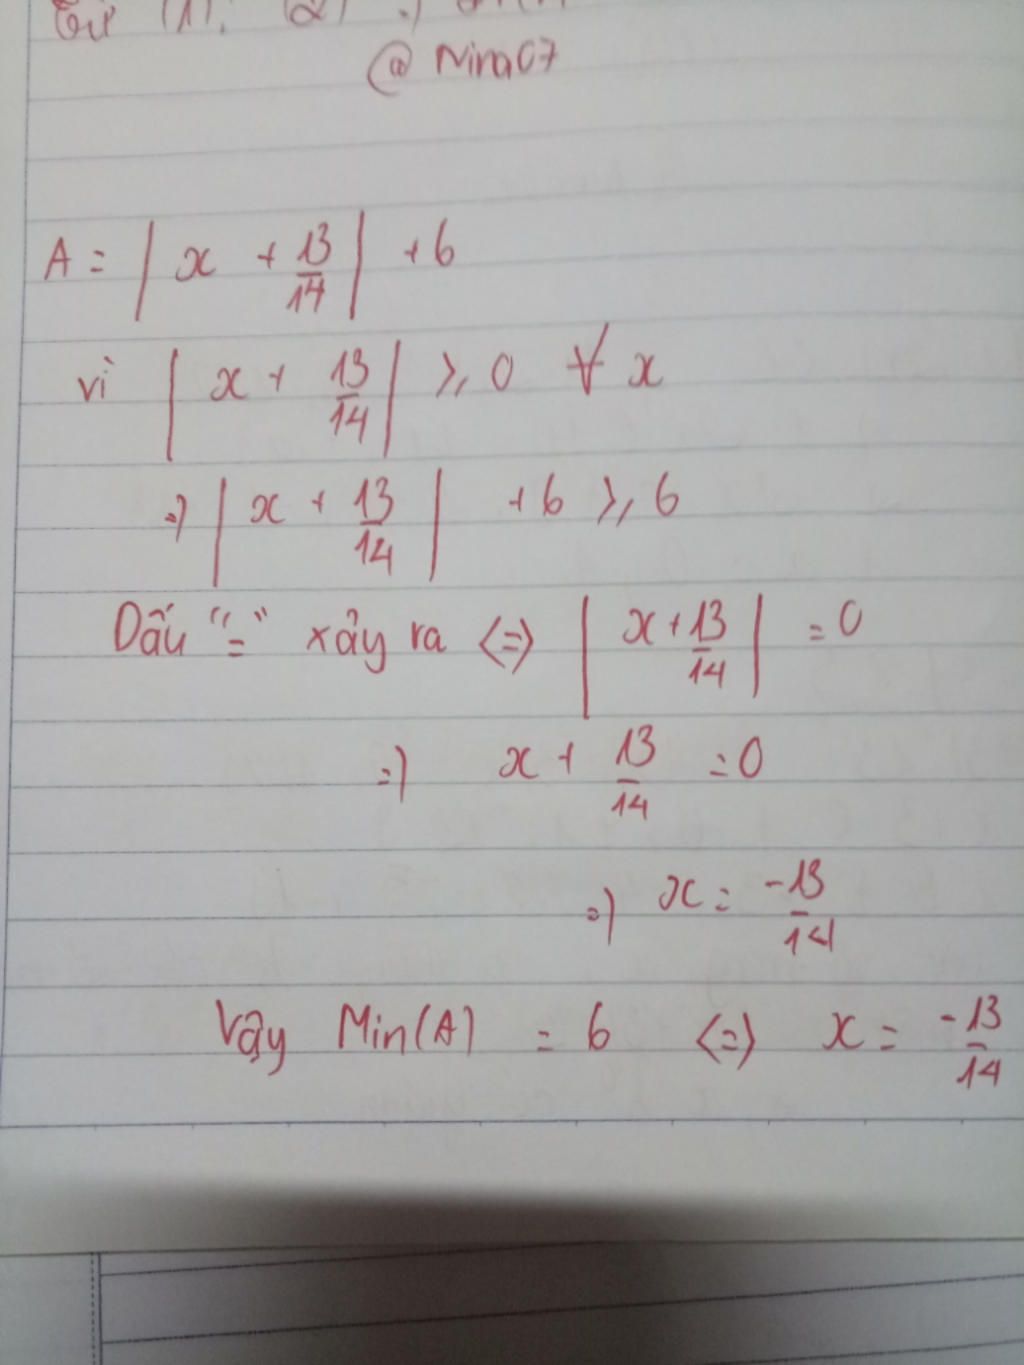 (1), (2) =)
@Nina07
A = | x + 13/14 | + 6
vì | x + 13/14 | ⩾ 0 ∀ x
=) | x + 13/14 | + 6 ⩾ 6
Dấu "=" xảy ra <=> | x + 13/14 | = 0
=) x + 13/14 = 0
=) x = -13/14
Vậy Min(A) = 6 <=> x = -13/14